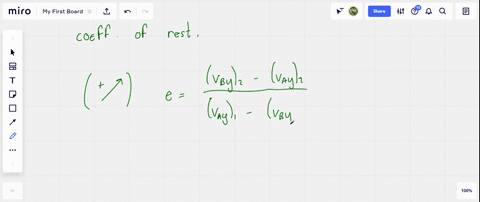 miro My First Board Share
coeff. of rest.
( + ↗ ) e = ((v_By)_2 - (v_Ay)_2) / ((v_Ay)_1 - (v_By
100%